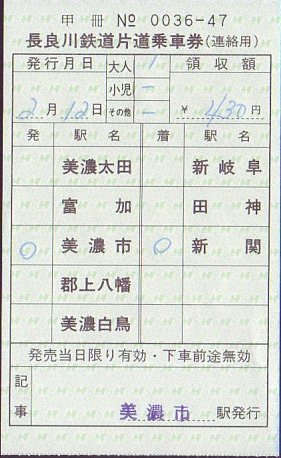 甲冊 № 0036-47
長良川鉄道片道乗車券(連絡用)
発行月日 大人 1 領収額
小児 ー
2月12日 その他 ー ¥ 430円
発 駅名 着 駅名
美濃太田 新岐阜
富加 田神
○ 美濃市 ○ 新関
郡上八幡
美濃白鳥
発売当日限り有効・下車前途無効
記事 美濃市 駅発行